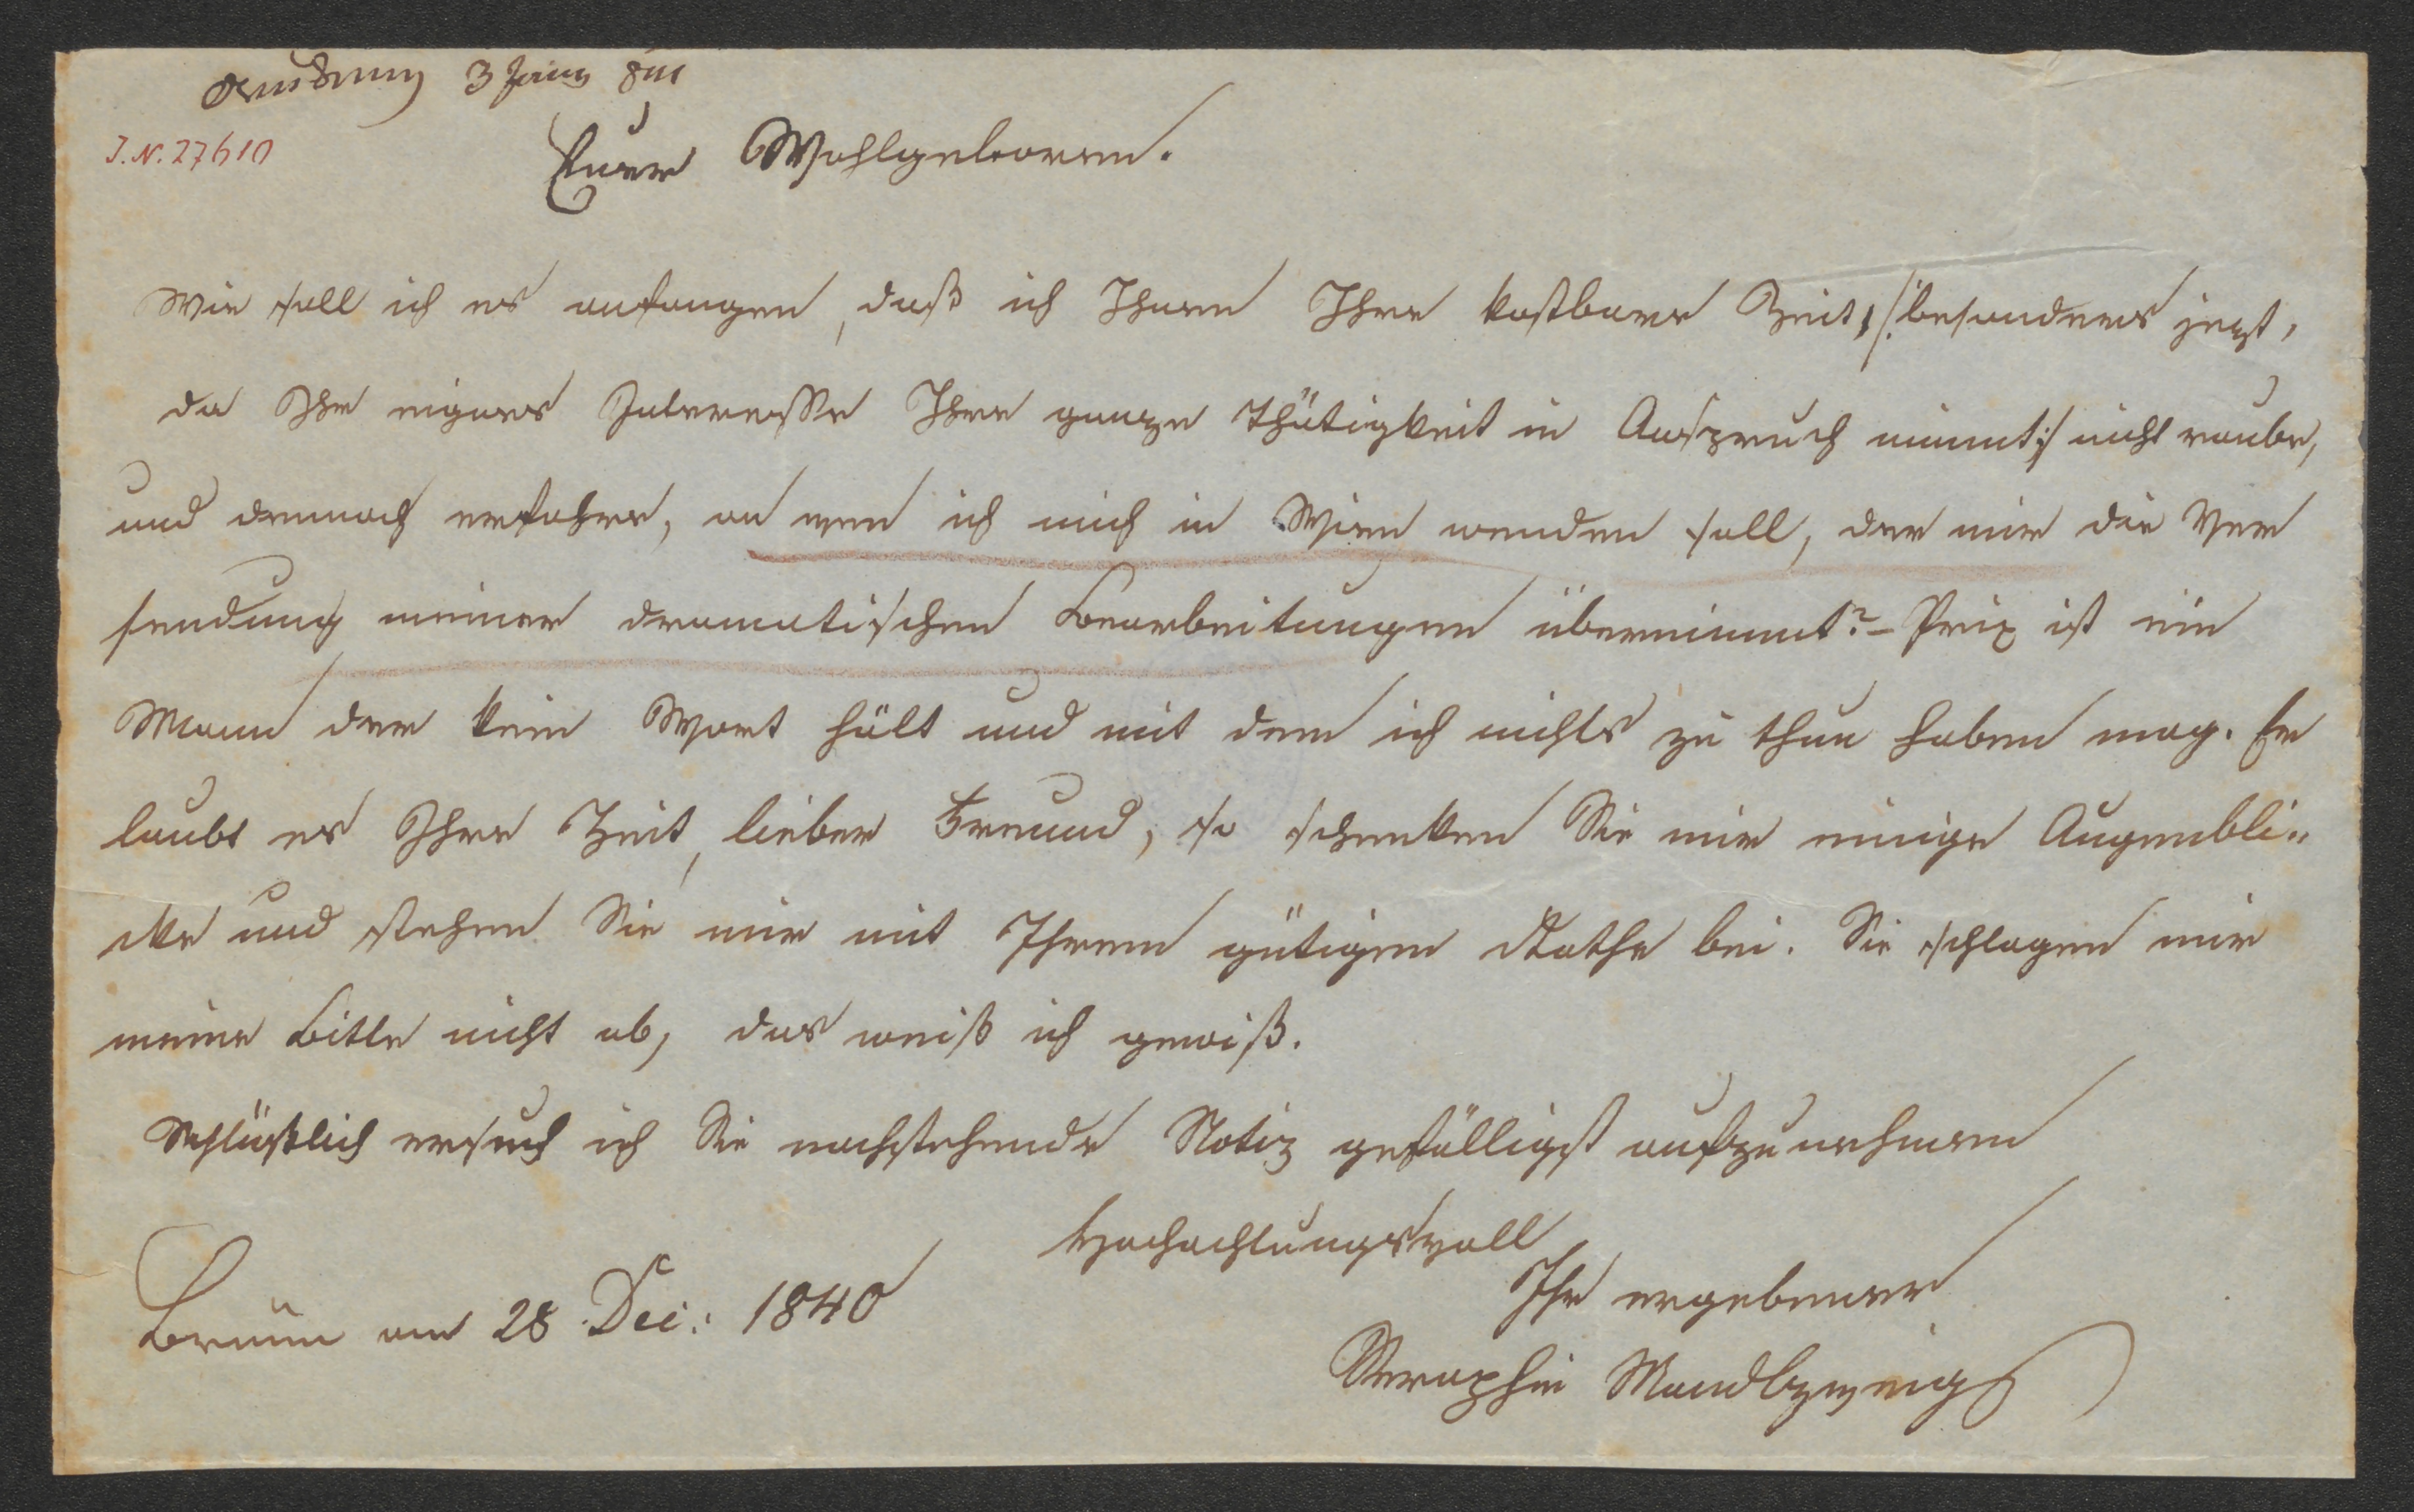 3 Jän 841
J. N. 27610
Euer Wohlgeboren.
Wie soll ich es anfangen, daß ich Ihnen Ihre kostbare Zeit /:besonders jezt,
da Ihr eignes Interesse Ihre ganze Thätigkeit in Anspruch nimmt:/ nicht raube,
und dennoch erfahre, an wen ich mich in Wien wenden soll, der mir die Ver
sendung meiner dramatischen Bearbeitungen übernimmt? – Prix ist ein
Mann der kein Wort hält und mit dem ich nichts zu thun haben mag. Er
laubt es Ihre Zeit, lieber Freund, so schenken Sie mir einige Augenbli-
cke und stehen Sie mir mit Ihrem gütigen Rathe bei. Sie schlagen mir
meine Bitte nicht ab, das weiß ich gewiß.
Schlüßlich ersuch ich Sie nachstehende Notiz gefälligst aufzunehmen
Hochachtungsvoll
Ihr ergebener
Brünn am 28 Dec: 1840
Seraphin Mandlzweig